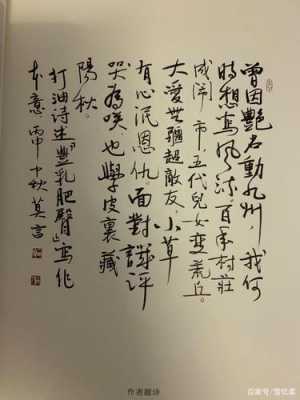 曾因艷名動九州，我何
時想寫風流。百年村莊
成鬧市，五代兒女變荒丘
大愛無疆超敵友，小草
有心泯恩仇。面對譏評
哭為咲，也學皮裏藏
陽秋。
打油诗述「豐乳肥臀」寫作
本意 丙申中秋 莫言
作者题诗
百家号/雪忆柔